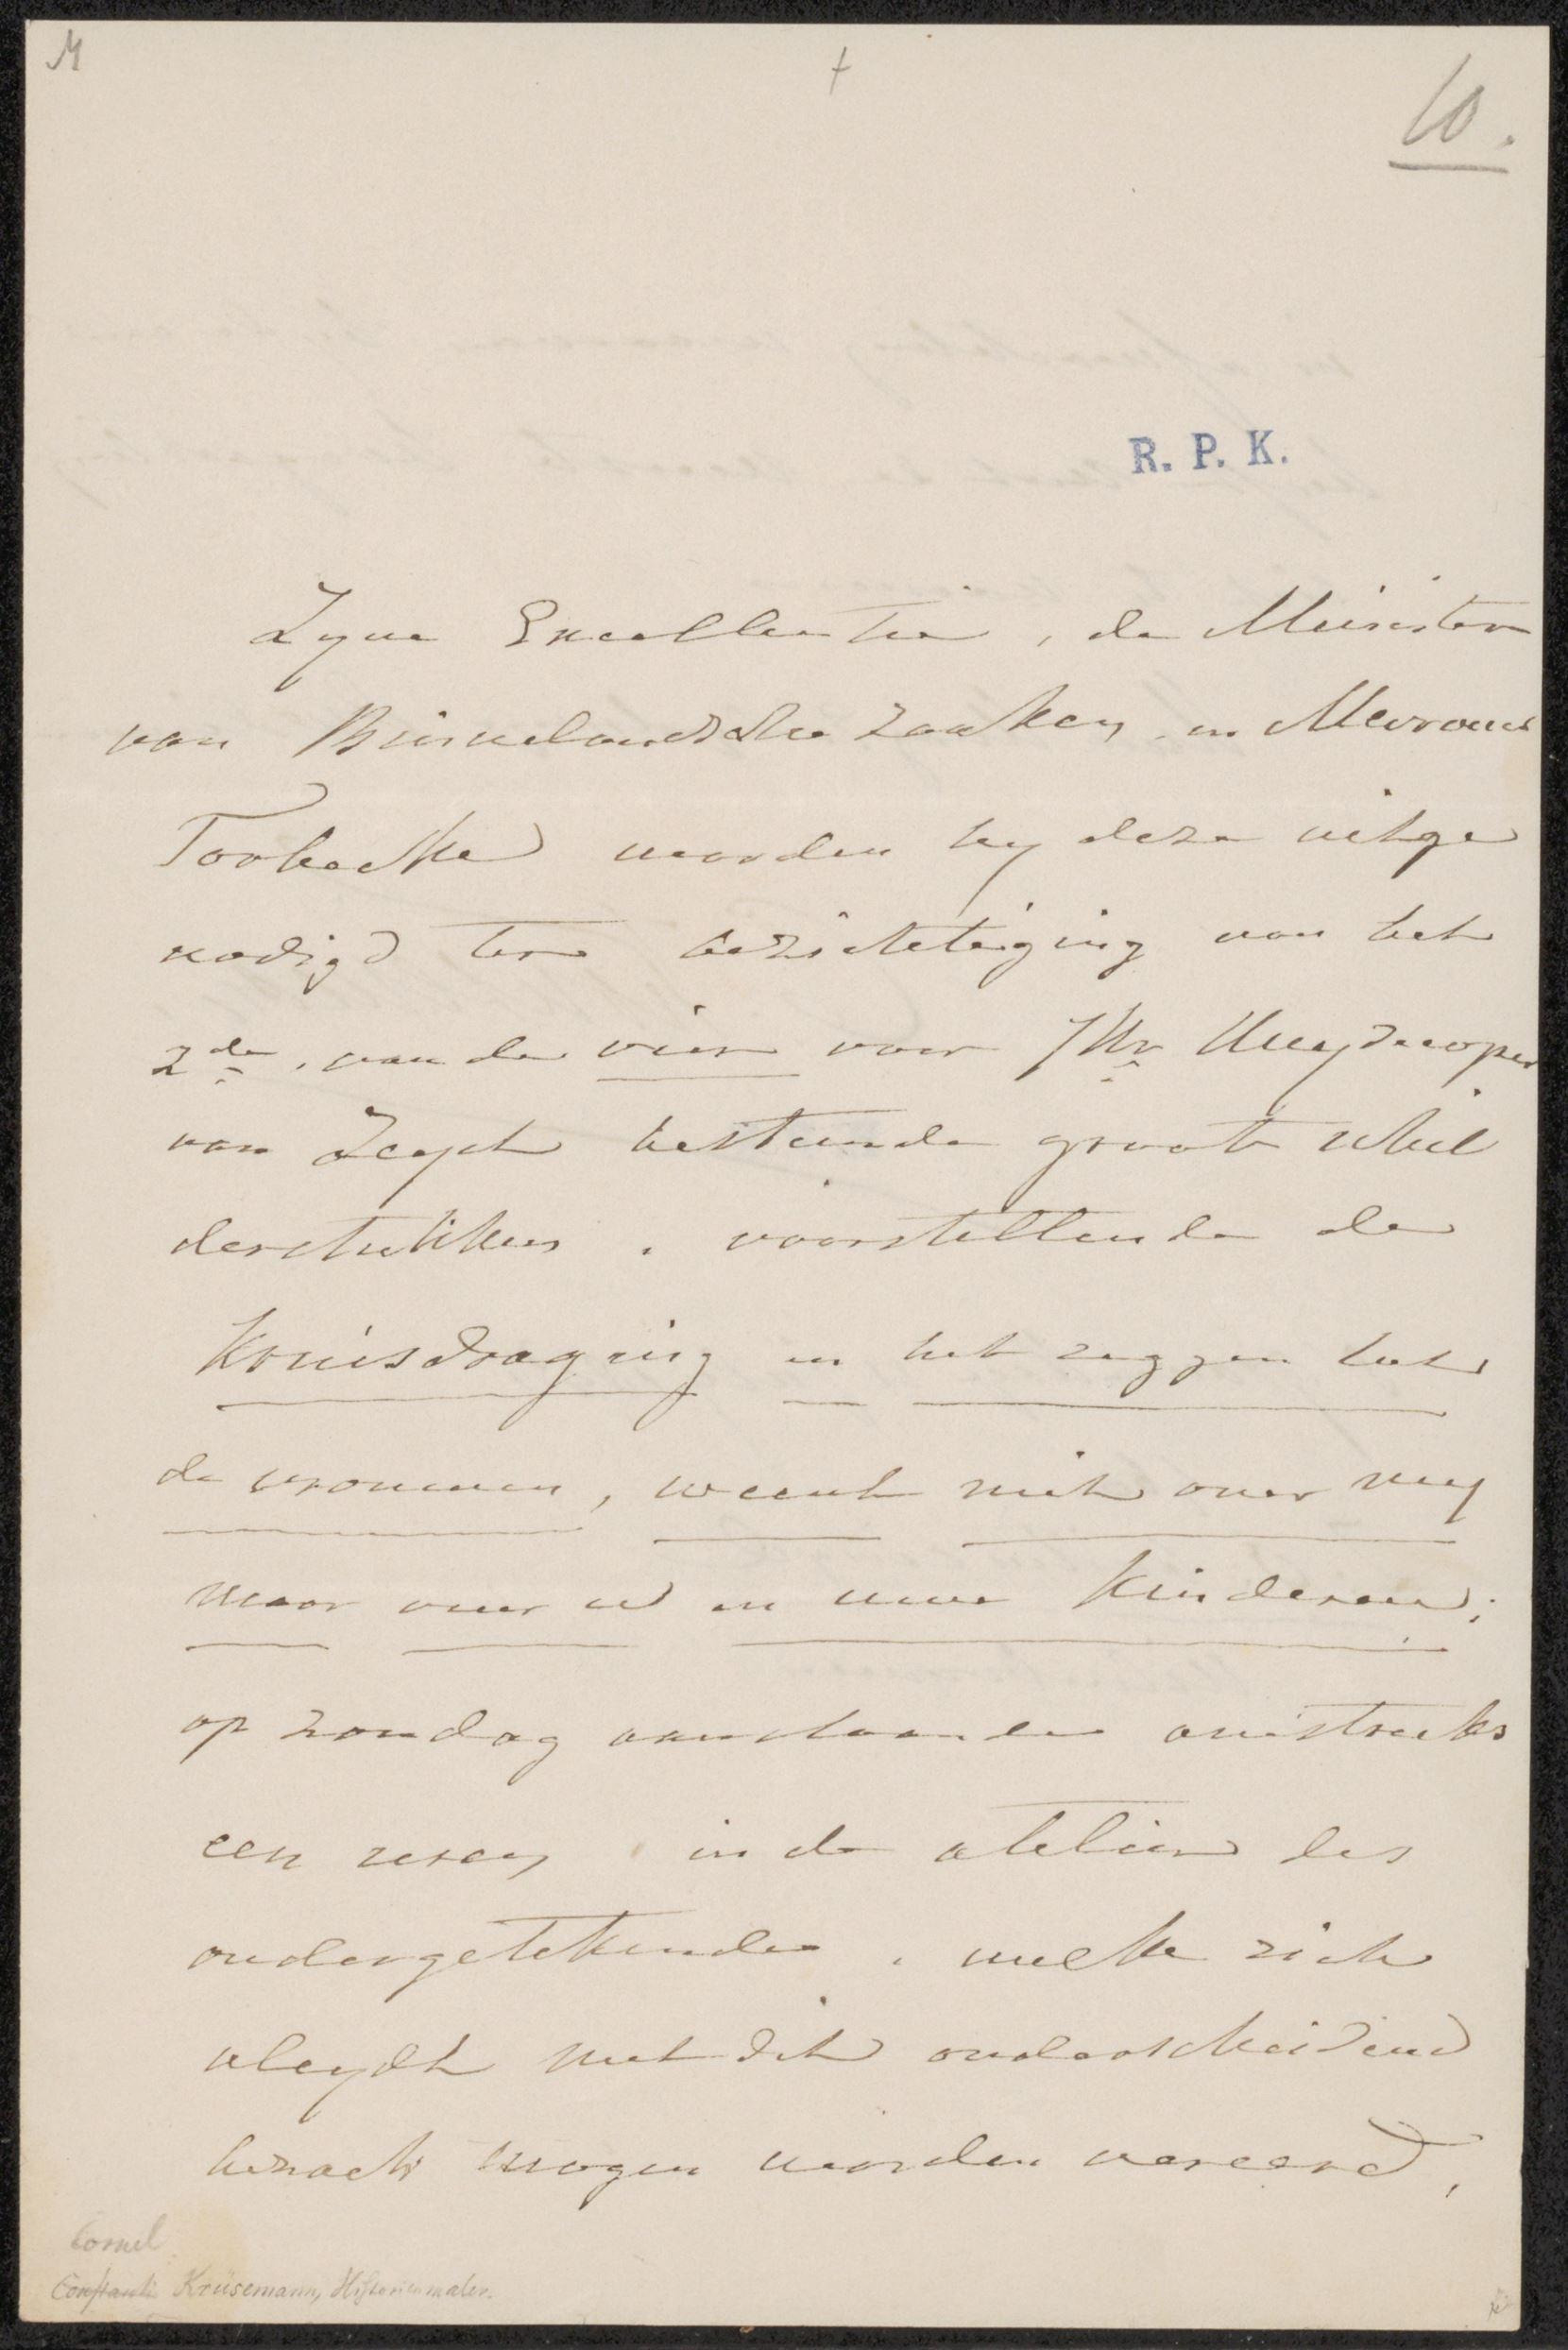 M
10.
R. P. K.
Zyne Excellentie, de Minister
van Binnelandsche zaaken, en Mevrouw
Torbecke worden by deze uitge
nodigd ter bezichteiging van het
2de. van de vier voor JHr Huydecoper
van Zeyst bestemde groote schil
derstukken, voorstellende de
Kruisdraging en het zeggen tot
de vrouwen, weent niet over my
maar over u en uwe kinderen;
op zondag aanstaande omstreeks
een uren in de atelier des
ondergetekende, welke zich
vleydt met dit onderscheidend
bezoek mogen worden vereerd,
Cornel
Constantin Krüsemann, Historienmaler.